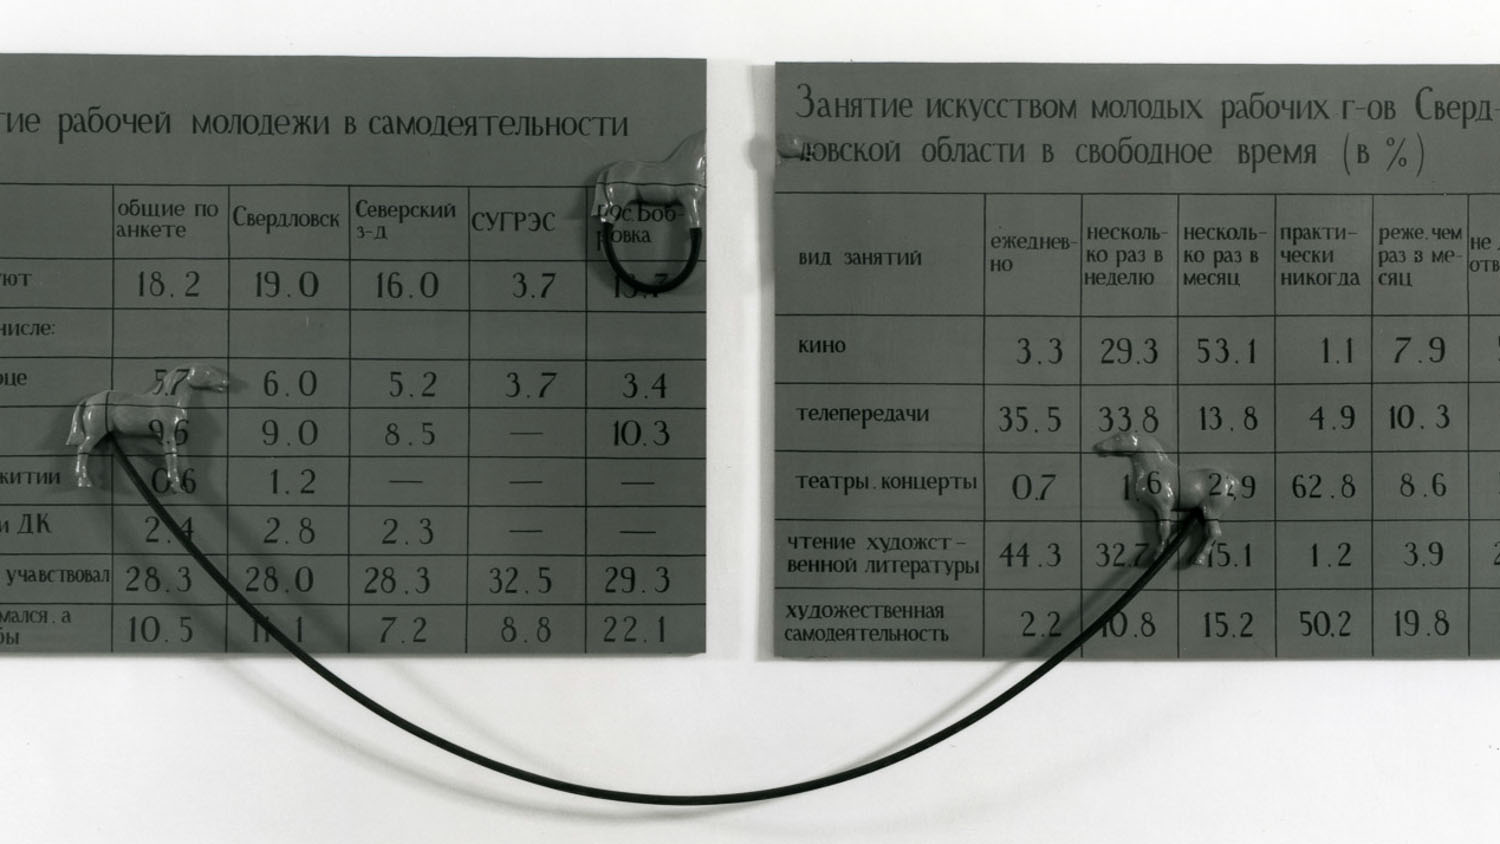 рабочей молодежи в самодеятельности
общие по анкете Свердловск Северский з-д СУГРЭС
18.2 19.0 16.0 3.7
числе:
6.0 5.2 3.7 3.4
9.0 8.5 — 10.3
1.2 — — —
и ДК 2.4 2.8 2.3 — —
учавствовал 28.3 28.0 28.3 32.5 29.3
10.5 7.2 8.8 22.1
Занятие искусством молодых рабочих г-ов Сверд-
ловской области в свободное время (в %)
вид занятий ежеднев-но несколь-ко раз в неделю несколь-ко раз в месяц практи-чески никогда реже.чем раз в ме-сяц не
кино 3.3 29.3 53.1 1.1 7.9
телепередачи 35.5 33.8 13.8 4.9 10.3
театры.концерты 0.7 62.8 8.6
чтение художст-венной литературы 44.3 32.7 15.1 1.2 3.9
художественная самодеятельность 2.2 10.8 15.2 50.2 19.8